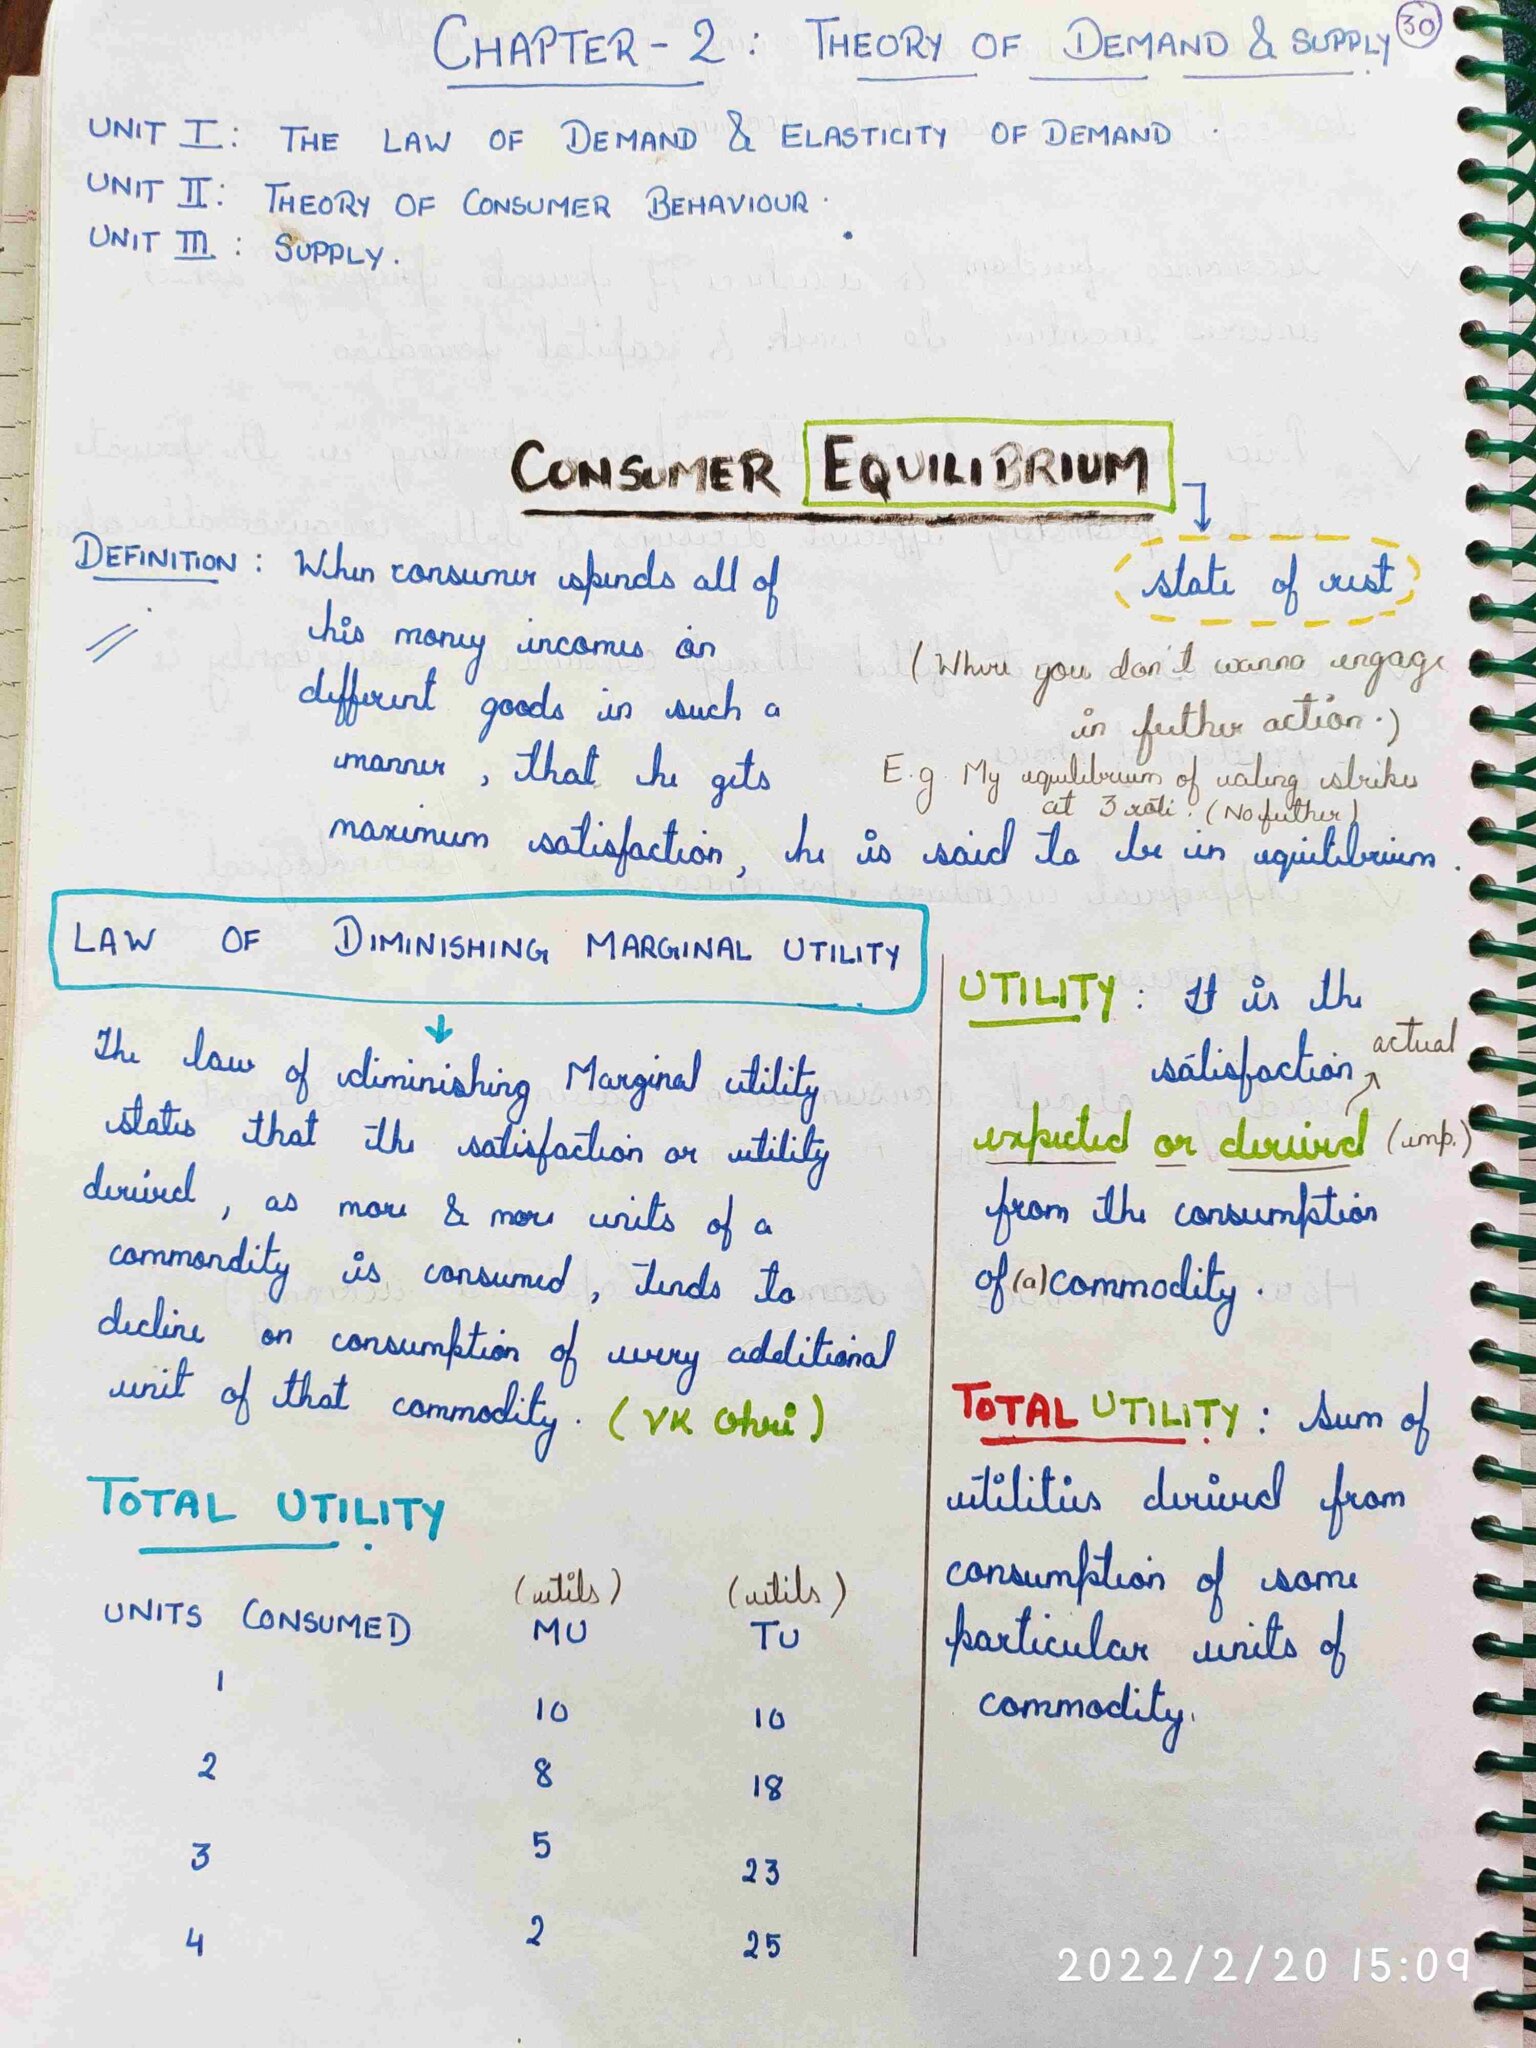 CHAPTER - 2 : THEORY OF DEMAND & SUPPLY 30
UNIT I : THE LAW OF DEMAND & ELASTICITY OF DEMAND .
UNIT II : THEORY OF CONSUMER BEHAVIOUR .
UNIT III : SUPPLY .
CONSUMER EQUILIBRIUM
state of rest
(Where you don't wanna engage
in futher action .)
E.g My equilibrium of eating strikes
at 3 roti . (No futher)
DEFINITION : When consumer spends all of
his money incomes on
different goods in such a
manner , that he gets
maximum satisfaction , he is said to be in equilibrium .
LAW OF DIMINISHING MARGINAL UTILITY
The law of diminishing Marginal utility
states that the satisfaction or utility
derived , as more & more units of a
commondity is consumed , tends to
decline on consumption of every additional
unit of that commodity . (VK Ohri)
TOTAL UTILITY
UNITS CONSUMED (utils) MU (utils) TU
1 10 10
2 8 18
3 5 23
4 2 25
UTILITY : It is the
satisfaction actual
expected or derived (imp.)
from the consumption
of (a) commodity .
TOTAL UTILITY : Sum of
utilities derived from
consumption of some
particular units of
commodity .
2022/2/20 15:09